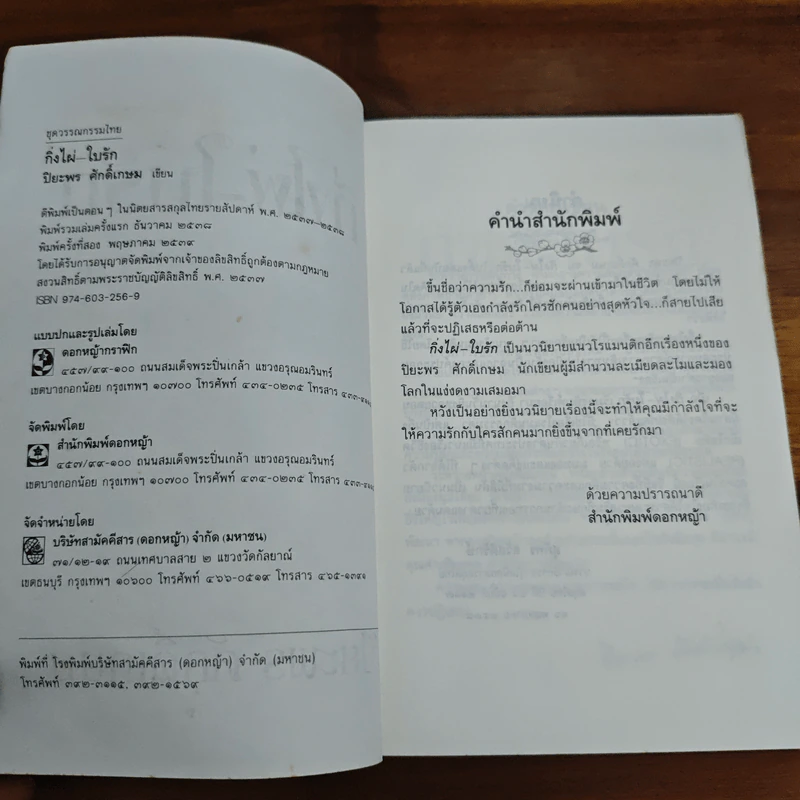 ชุดวรรณกรรมไทย
กิ่งไผ่-ใบรัก
ปิยะพร ศักดิ์เกษม เขียน
ตีพิมพ์เป็นตอนๆ ในนิตยสารสกุลไทยรายสัปดาห์ พ.ศ. ๒๕๓๗-๒๕๓๘
พิมพ์รวมเล่มครั้งแรก ธันวาคม ๒๕๓๘
พิมพ์ครั้งที่สอง พฤษภาคม ๒๕๓๙
โดยได้รับการอนุญาตจัดพิมพ์จากเจ้าของลิขสิทธิ์ถูกต้องตามกฎหมาย
สงวนสิทธิ์ตามพระราชบัญญัติลิขสิทธิ์ พ.ศ. ๒๕๓๗
ISBN 974-603-256-9
แบบปกและรูปเล่มโดย
ดอกหญ้ากราฟิก
๔๕๗/๙๙-๑๐๐ ถนนสมเด็จพระปิ่นเกล้า แขวงอรุณอมรินทร์
เขตบางกอกน้อย กรุงเทพฯ ๑๐๗๐๐ โทรศัพท์ ๔๓๔-๐๒๓๕ โทรสาร
จัดพิมพ์โดย
สำนักพิมพ์ดอกหญ้า
๔๕๗/๙๙-๑๐๐ ถนนสมเด็จพระปิ่นเกล้า แขวงอรุณอมรินทร์
เขตบางกอกน้อย กรุงเทพฯ ๑๐๗๐๐ โทรศัพท์ ๔๓๔-๐๒๓๕ โทรสาร
จัดจำหน่ายโดย
บริษัทสามัคคีสาร (ดอกหญ้า) จำกัด (มหาชน)
๗๑/๑๒-๑๙ ถนนเทศบาลสาย ๒ แขวงวัดกัลยาณ์
เขตธนบุรี กรุงเทพฯ ๑๐๖๐๐ โทรศัพท์ ๔๖๖-๐๕๑๙ โทรสาร ๔๖๕-๑๓๙๑
พิมพ์ที่ โรงพิมพ์บริษัทสามัคคีสาร (ดอกหญ้า) จำกัด (มหาชน)
โทรศัพท์ ๓๙๒-๓๑๑๕, ๓๙๒-๑๕๖๙
คำนำสำนักพิมพ์
ขึ้นชื่อว่าความรัก...ก็ย่อมจะผ่านเข้ามาในชีวิต โดยไม่ให้
โอกาสได้รู้ตัวเองกำลังรักใครซักคนอย่างสุดหัวใจ...ก็สายไปเสีย
แล้วที่จะปฏิเสธหรือต่อต้าน
กิ่งไผ่-ใบรัก เป็นนวนิยายแนวโรแมนติกอีกเรื่องหนึ่งของ
ปิยะพร ศักดิ์เกษม นักเขียนผู้มีสำนวนละเมียดละไมและมอง
โลกในแง่งดงามเสมอมา
หวังเป็นอย่างยิ่งนวนิยายเรื่องนี้จะทำให้คุณมีกำลังใจที่จะ
ให้ความรักกับใครสักคนมากยิ่งขึ้นจากที่เคยรักมา
ด้วยความปรารถนาดี
สำนักพิมพ์ดอกหญ้า